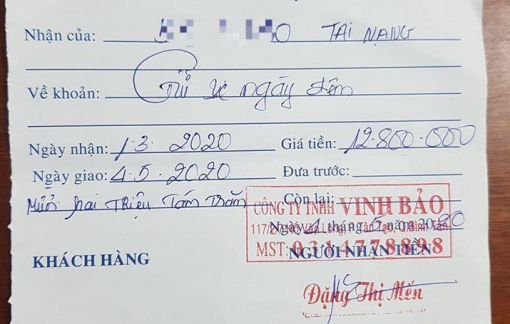 Nhận của: TAI NANG
Về khoản: Giữ xe ngày đêm
Ngày nhận: 1.3.2020 Giá tiền: 12.800.000
Ngày giao: 4.5.2020 Đưa trước:
Mười hai Triệu Tám Trăm Còn lại:
CÔNG TY TNHH VINH BẢO
Ngày 4 tháng 5 năm 2020
MST: 0314778898
KHÁCH HÀNG NGƯỜI NHẬN TIỀN
Đặng Thị Mến